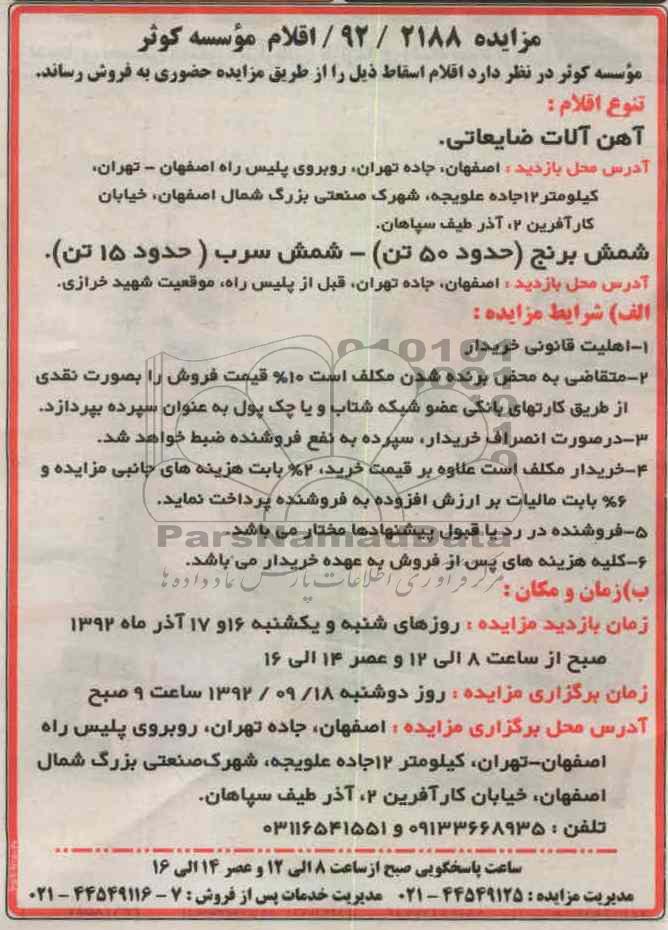 مزایده ۲۱۸۸ / ۹۲ / اقلام مؤسسه کوثر
مؤسسه کوثر در نظر دارد اقلام اسقاط ذیل را از طریق مزایده حضوری به فروش رساند.
تنوع اقلام :
آهن آلات ضایعاتی.
آدرس محل بازدید : اصفهان، جاده تهران، روبروی پلیس راه اصفهان - تهران،
کیلومتر۱۲جاده علویجه، شهرک صنعتی بزرگ شمال اصفهان، خیابان
کارآفرین ۲، آذر طیف سپاهان.
شمش برنج (حدود ۵۰ تن) - شمش سرب ( حدود ۱۵ تن).
آدرس محل بازدید : اصفهان، جاده تهران، قبل از پلیس راه، موقعیت شهید خرازی.
الف) شرایط مزایده :
۱-اهلیت قانونی خریدار
۲-متقاضی به محض برنده شدن مکلف است ۱۰% قیمت فروش را بصورت نقدی
از طریق کارتهای بانکی عضو شبکه شتاب و یا چک پول به عنوان سپرده بپردازد.
۳-درصورت انصراف خریدار، سپرده به نفع فروشنده ضبط خواهد شد.
۴-خریدار مکلف است علاوه بر قیمت خرید، ۲% بابت هزینه های جانبی مزایده و
۶% بابت مالیات بر ارزش افزوده به فروشنده پرداخت نماید.
۵-فروشنده در رد یا قبول پیشنهادها مختار می باشد.
ParsNamadData
۶-کلیه هزینه های پس از فروش به عهده خریدار می باشد.
مرکز فرآوری اطلاعات پارس نماد داده ها
ب)زمان و مکان :
زمان بازدید مزایده : روزهای شنبه و یکشنبه ۱۶و ۱۷ آذر ماه ۱۳۹۲
صبح از ساعت ۸ الی ۱۲ و عصر ۱۴ الی ۱۶
زمان برگزاری مزایده : روز دوشنبه ۱۸/ ۰۹ / ۱۳۹۲ ساعت ۹ صبح
آدرس محل برگزاری مزایده : اصفهان، جاده تهران، روبروی پلیس راه
اصفهان-تهران، کیلومتر ۱۲جاده علویجه، شهرک‌صنعتی بزرگ شمال
اصفهان، خیابان کارآفرین ۲، آذر طیف سپاهان.
تلفن : ۰۹۱۳۳۶۶۸۹۳۵ و ۰۳۱۱۶۵۴۱۵۵۱
ساعت پاسخگویی صبح ازساعت ۸ الی ۱۲ و عصر ۱۴ الی ۱۶
مدیریت مزایده : ۴۴۵۴۹۱۲۵ - ۰۲۱ مدیریت خدمات پس از فروش : ۷ - ۴۴۵۴۹۱۱۶ - ۰۲۱